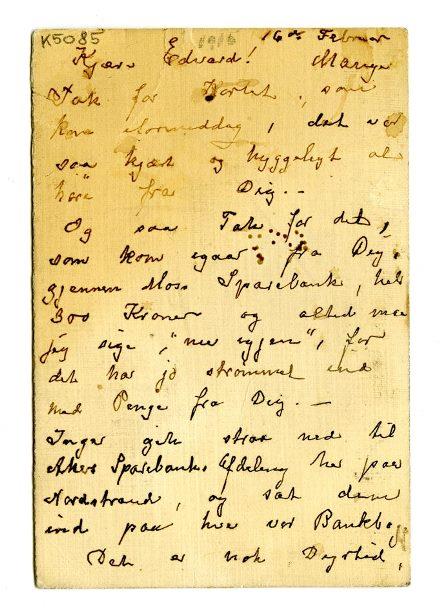 K5085 1916
16de Februar
Kjære Edvard! Mange
Tak for Kortet, som
kom iformiddag, det var
saa kjært og hyggeligt at
høre fra Dig. —
Og saa Tak for det,
som kom igaar fra Dig,
gjennem Moss Sparebank, hele
300 Kroner og altid maa
jeg sige, "nu igjen", for
det har jo strømmet ind
med Penge fra Dig. —
Inger gik straa ned til
Akers Sparebanks Afdeling her paa
Nordstrand, og sat dem
ind paa hve vor Bankbog
Det er nok Dyrtid,